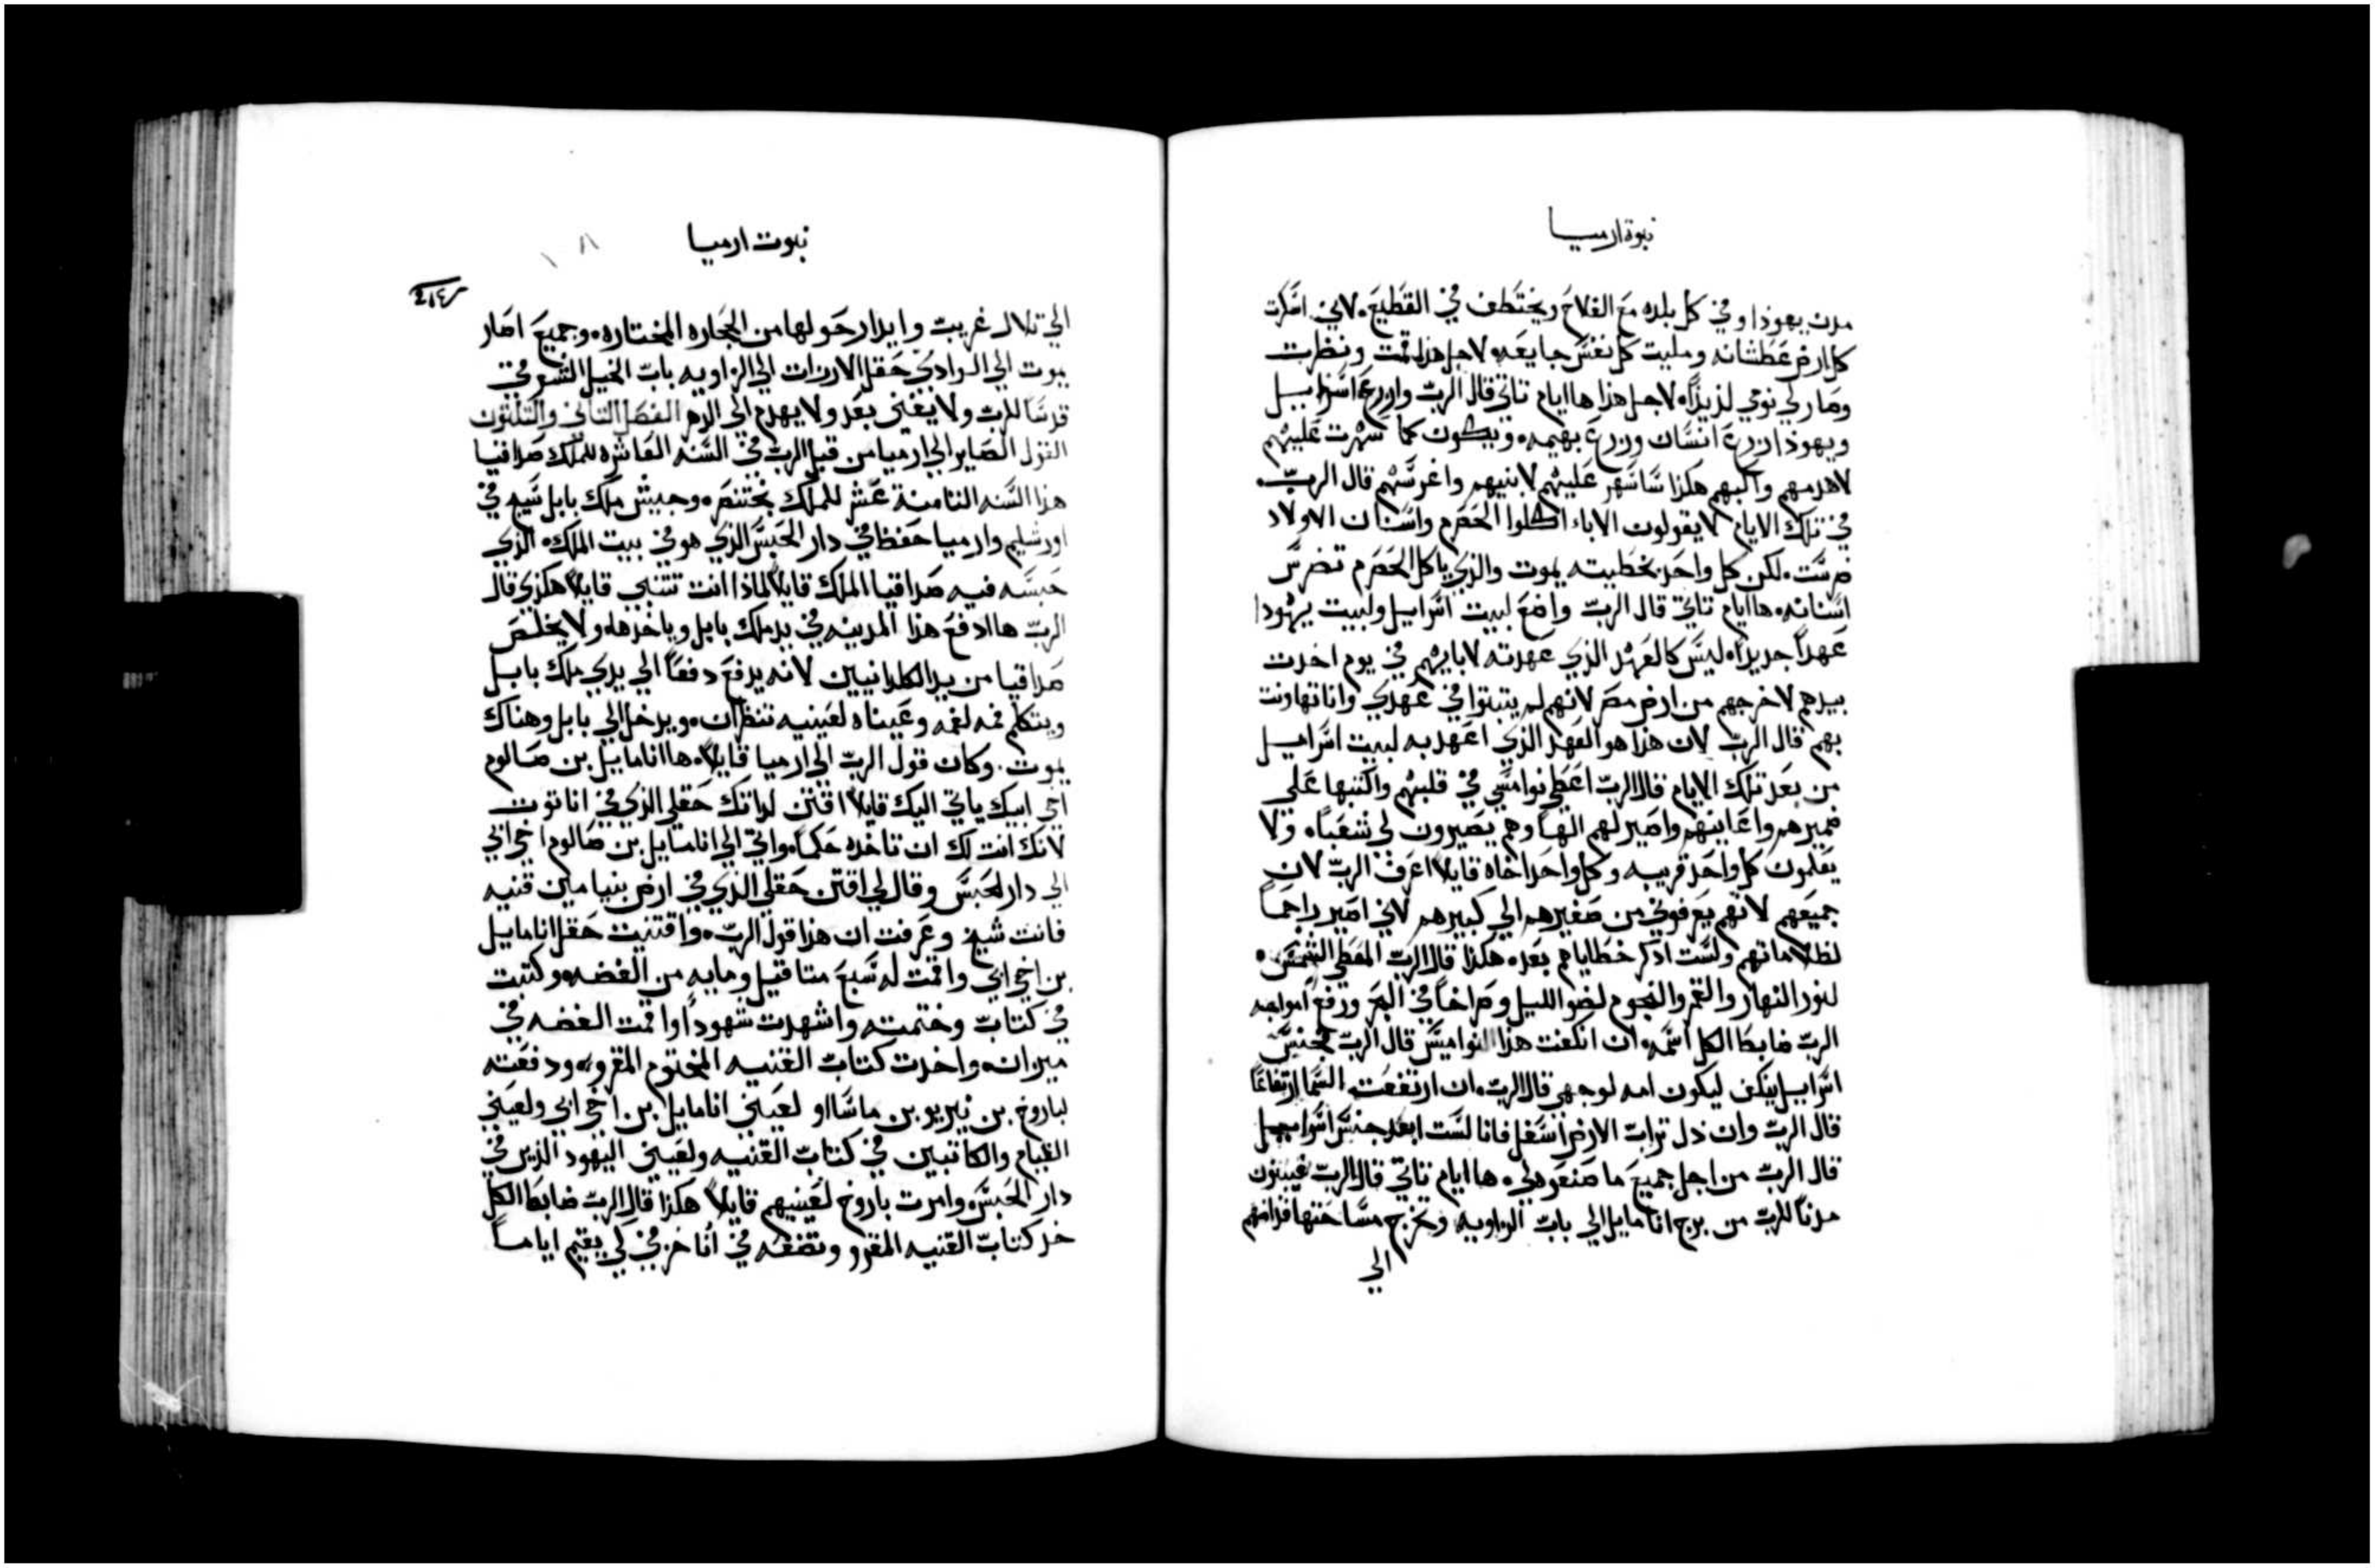 نبوة ارميا
مدن يهوذا وفي كل بلده مع الفلاح ويختطف في القطيع. لاني اسكرت
كل ارض عطشانه ومليت كل نفس جايعه. لاجل هذا قمت ونظرت
وصار لي نومي لذيذاً. لاجل هذا ها ايام تاتي قال الرب وازرع اسراييل
ويهوذا زرع انسان وزرع بهيمه. ويكون كما سهرت عليهم
لاهدمهم واكبهم هكذا ساسهر عليهم لابنيهم واغرسهم قال الرب.
في تلك الايام لا يقولون الاباء اكلوا الحصرم واسنان الاولاد
ضرست. لكن كل واحد بخطيته يموت والذي ياكل الحصرم تضرس
اسنانه. ها ايام تاتي قال الرب واضع لبيت اسراييل ولبيت يهودا
عهداً جديداً. ليس كالعهد الذي عهدته لابايهم في يوم اخذت
بيدهم لاخرجهم من ارض مصر لانهم لم يتبتوا في عهدي وانا تهاونت
بهم قال الرب لان هذا هو العهد الذي اعهد به لبيت اسراييل
من بعد تلك الايام قال الرب اعطي نواميسي في قلبهم واكتبها علي
ضميرهم واعاينهم واصير لهم الهاً وهم يصيرون لي شعباً. ولا
يعلمون كل واحد قريبه وكل واحد اخاه قايلاً اعرف الرب لان
جميعهم لانهم يعرفوني من صغيرهم الي كبيرهم لاني اصير راحماً
لظلاماتهم ولست اذكر خطاياهم بعد. هكذا قال الرب المعطي الشمس.
لنور النهار والقمر والنجوم لضو الليل وصراخاً في البحر ورفع امواجه
الرب ضابط الكل اسمه. ان انكفت هذا النواميس قال الرب فجنس
اسراييل ينكن ليكون امه لوجهي قال الرب. ان ارتفعت السما ارتفاعاً
قال الرب وان ذل تراب الارض اسفل فانا لست ابعد جنس اسراييل
قال الرب من اجل جميع ما صنعوه لي. ها ايام تاتي قال الرب فيبنون
مدناً للرب من برج اناماييل الي باب الزاويه ويخرج مساحتها قدامهم
الي
نبوت ارميا
الي تلال غريب وايدار حولها من الحجاره المختاره. وجميع اصار
يموت الي الوادي حقل الارزات الي الزاويه باب الخيل الشرقي
قدساً للرب ولا يفني بعد ولا يهدم الي الدهر الفصل التاني والتلتون
القول الصاير الي ارميا من قبل الرب في السنه العاشره للملك صداقيا
هذا السنه التامنة عشر للملك بختنصر. وجيش ملك بابل سيج في
اورشليم وارميا حفظ في دار الحبس الذي هو في بيت الملك. الذي
حبسه فيه صداقيا الملك قايلاً لماذا انت تتنبي قايلاً هكذي قال
الرب ها ادفع هذا المدينه في يد ملك بابل وياخذها. ولا يخلص
صداقيا من يد الكلدانيين لانه يدفع دفعاً الي يدي ملك بابل
ويتكلم فمه لفمه وعيناه لعينيه تنظران. ويدخل الي بابل وهناك
يموت. وكان قول الرب الي ارميا قايلاً. ها اناماييل بن صالوم
اخي ابيك ياتي اليك قايلاً اقتن لذاتك حقلي الذي في اناتوت
لانك انت لك ان تاخذه حكماً. واتي الي اناماييل بن صالوم اخي ابي
الي دار الحبس وقال لي اقتن حقلي الذي في ارض بنيامين قنيه
فانت شيخ وعرفت ان هذا قول الرب. واقتنيت حقل اناماييل
بن اخي ابي واقمت له سبع متاقيل ومايه من الفضه. وكتبت
في كتاب وختمته واشهدت شهوداً واقمت الفضه في
ميزان. واخذت كتاب القنيه المختوم المقرو. ودفعته
لباروخ بن نيريو بن ماسااو لعيني اناماييل بن اخي ابي ولعيني
القيام والكاتبين في كتاب القنيه ولعيني اليهود الذين في
دار الحبس. وامرت باروخ لعينيهم قايلاً هكذا قال الرب ضابط الكل
خذ كتاب القنيه المقرو وتضعه في انا خزفي لكي يقيم اياماً